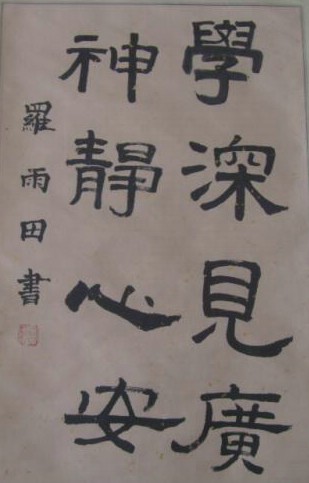 學深見廣
神靜心安
羅雨田書